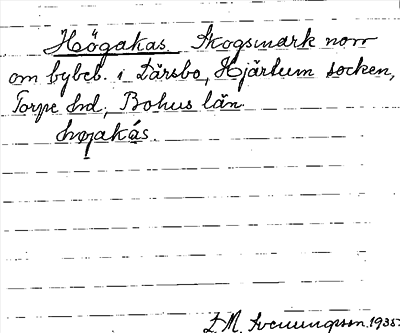 Högakas. Skogsmark norr
om bybeb. i Därsbo, Hjärtum socken,
Torpe hd, Bohus län.
høgakás.
D. M. Svenungsson. 1935.